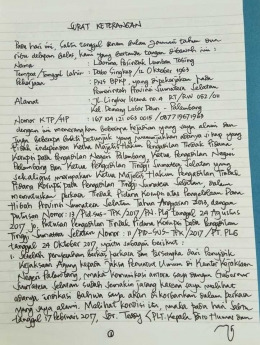 SURAT KETERANGAN
Pada hari ini, Sabtu tanggal enam bulan Januari tahun dua
ribu delapan belas, kami yang bertanda tangan dibawah ini :
Nama : Laonma Pasindak Lumban Tobing
Tempat/Tanggal Lahir : Dolok Singkap / 12 Oktober 1963
Pekerjaan : PNS BPKP, yang dipekerjakan pada
Pemerintah Provinsi Sumatera Selatan
Alamat : Jl. Lingkar Istana no. 4 RT/RW 052/
Kel. Demang Lebar Daun - Palembang
Nomor KTP/HP :
dengan ini menerangkan beberapa kejadian yang saya alami dan
Pihak independen Ketua Majelis Hakim Pengadilan Tindak Pidana
Korupsi pada Pengadilan Negeri Palembang, Ketua Pengadilan Negeri
Palembang dan Ketua Pengadilan Tinggi Sumatera Selatan yang
sekaligus merupakan Ketua Majelis Hakim Pengadilan Tindak
Pidana Korupsi pada Pengadilan Tinggi Sumatera Selatan dalam
memutuskan perkara Tindak Pidana Korupsi atas Pengelolaan Dana
Hibah Provinsi Sumatera Selatan Tahun Anggaran 2013, dengan
putusan Nomor: 13/Pid.Sus-TPK/2017/PN.Plg tanggal 24 Agustus
2017 Jo. Putusan Pengadilan Tindak Pidana Korupsi pada Pengadilan
Tinggi Sumatera Selatan Nomor 11/PID-SUS-TPK/2017/PT PLG
tanggal 24 Oktober 2017 yaitu sebagai berikut :
1. Setelah penyerahan berkas perkara dan tersangka dari Penyidik
Kejaksaan Agung kepada Jaksa Penuntut Umum di Kantor Kejaksaan
Negeri Palembang, maka komunikasi antara saya dengan Gubernur
Sumatera Selatan sudah semakin jarang karena saya melihat
adanya indikasi bahwa saya akan dikorbankan dalam perkara
yang saya alami. Melihat kondisi ini, maka pada hari Sabtu
tanggal 17 Februari 2017, Sdr. (PLT. Kepala Biro Humas dan